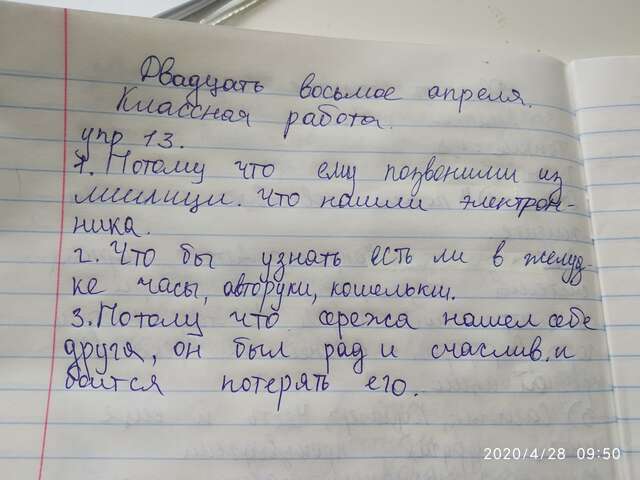 Двадцать восьмое апреля.
Классная работа.
упр 13.
1. Потому что ему позвонили из
милици. Что нашли электрон-
ника.
2. Что бы узнать есть ли в желуд-
ке часы, авторуки, кошельки.
3. Потому что сережа нашел себе
друга, он был рад и счаслив. и
боится потерять его.
2020/4/28 09:50